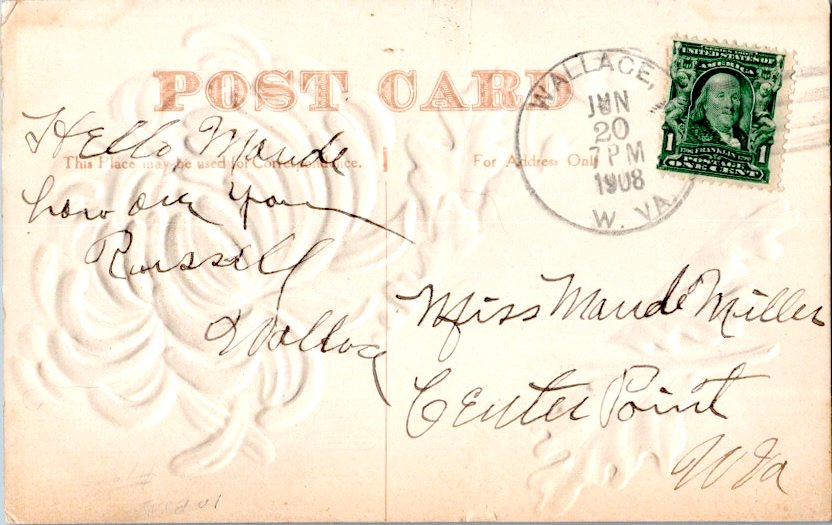 POST CARD
This Place may be used for Correspondence.
For Address Only
Hello Maude
how are you
Russell
Wallace
WALLACE,
JUN
20
7 PM
1908
W. VA.
SERIES 1902
UNITED STATES OF
AMERICA
1 FRANKLIN 1
POSTAGE
ONE CENT
Miss Maude Miller
Center Point
W Va